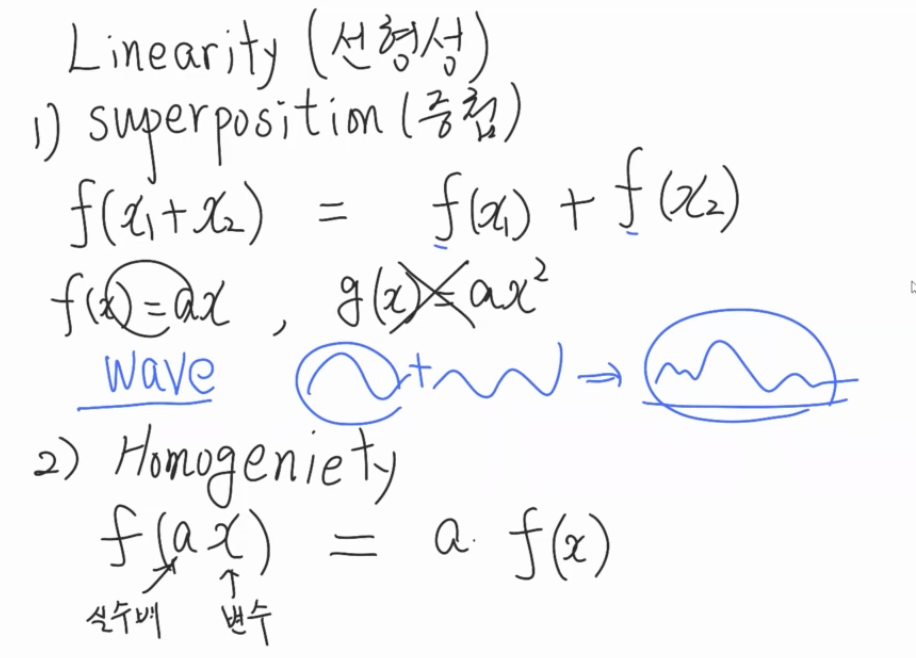 Linearity (선형성)
1) superposition (중첩)
f(x₁+x₂) = f(x₁) + f(x₂)
f(x) = ax , g(x) = ax²
wave + →
2) Homogeniety
f(ax) = a · f(x)
실수배 변수